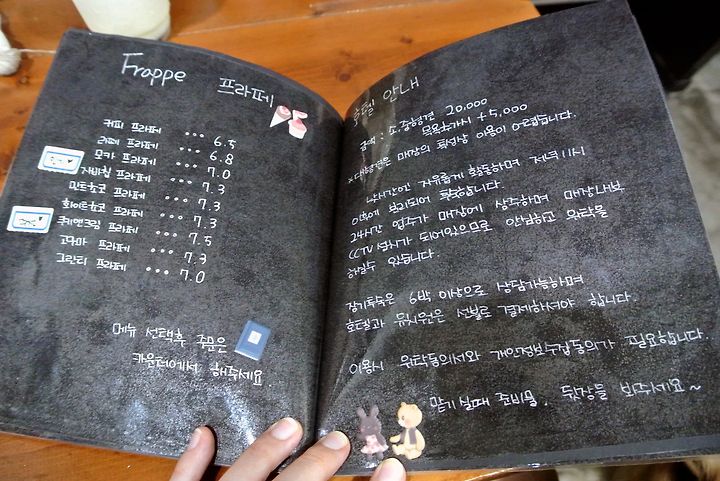 Frappe 프라페
커피 프라페 ... 6.5
라떼 프라페 ... 6.8
모카 프라페 ... 7.0
자바칩 프라페 ... 7.3
민트초코 프라페 ... 7.3
화이트초코 프라페 ... 7.3
쿠키앤크림 프라페 ... 7.5
고구마 프라페 ... 7.3
그린티 프라페 ... 7.0
메뉴 선택후 주문은
카운터에서 해주세요
호텔 안내
금액 : 소,중형견 20,000
목욕추가시 +5,000
※대형견은 매장의 특성상 이용이 어렵습니다.
낮시간엔 자유롭게 활동하며 저녁11시
이후에 분리되어 취침합니다.
24시간 업주가 매장에 상주하며 매장내부
CCTV 설치가 되어있으므로 안심하고 위탁을
하실수 있습니다.
장기투숙은 6박 이상으로 상담가능하며
호텔과 유치원은 선불로 결제하셔야 합니다.
이용시 위탁동의서와 개인정보수집동의가 필요합니다.
맡기실때 준비물, 뒷장을 봐주세요~